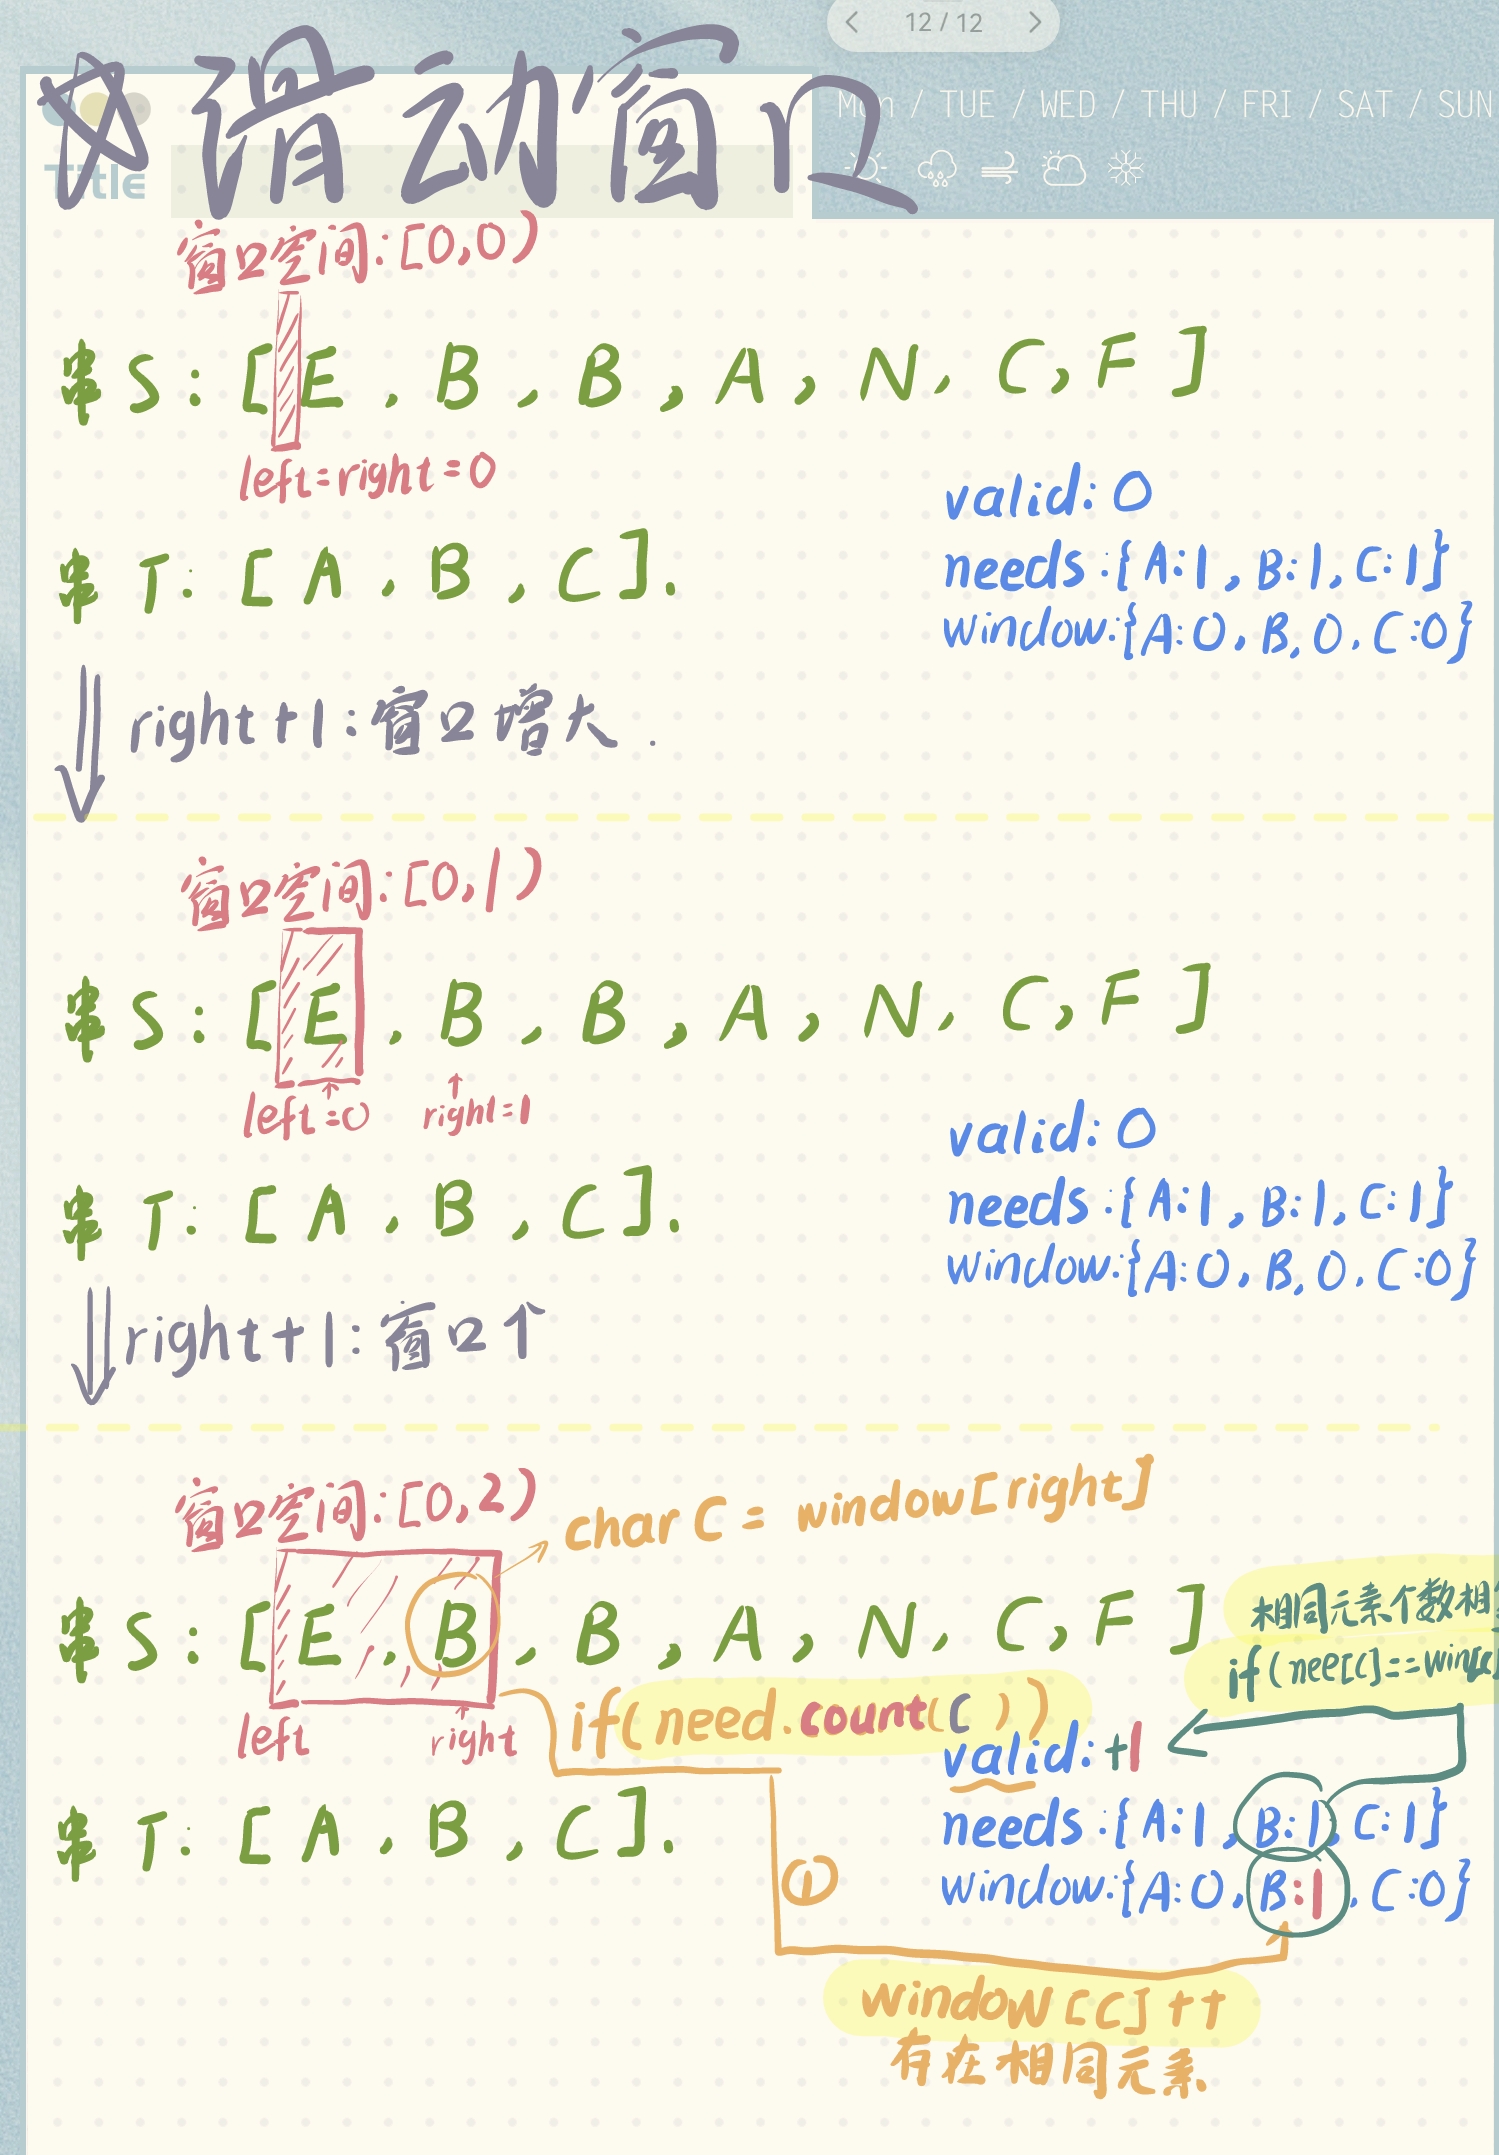 12 / 12
滑动窗口
Mon / TUE / WED / THU / FRI / SAT / SUN
Title
窗口空间:[0,0)
串S:[E,B,B,A,N,C,F]
left=right=0
valid:0
串T:[A,B,C].
needs:{A:1,B:1,C:1}
window:{A:0,B,0,C:0}
right+1:窗口增大.
窗口空间:[0,1)
串S:[E,B,B,A,N,C,F]
left=0 right=1
valid:0
串T:[A,B,C].
needs:{A:1,B:1,C:1}
window:{A:0,B,0,C:0}
right+1:窗口个
窗口空间:[0,2)
char C = window[right]
相同元素个数相
串S:[E,B,B,A,N,C,F]
if(nee[c]==win[c
left right
if(need.count(C))
valid:+1
串T:[A,B,C].
needs:{A:1,B:1,C:1}
①
window:{A:0,B:1,C:0}
window[C]++
存在相同元素